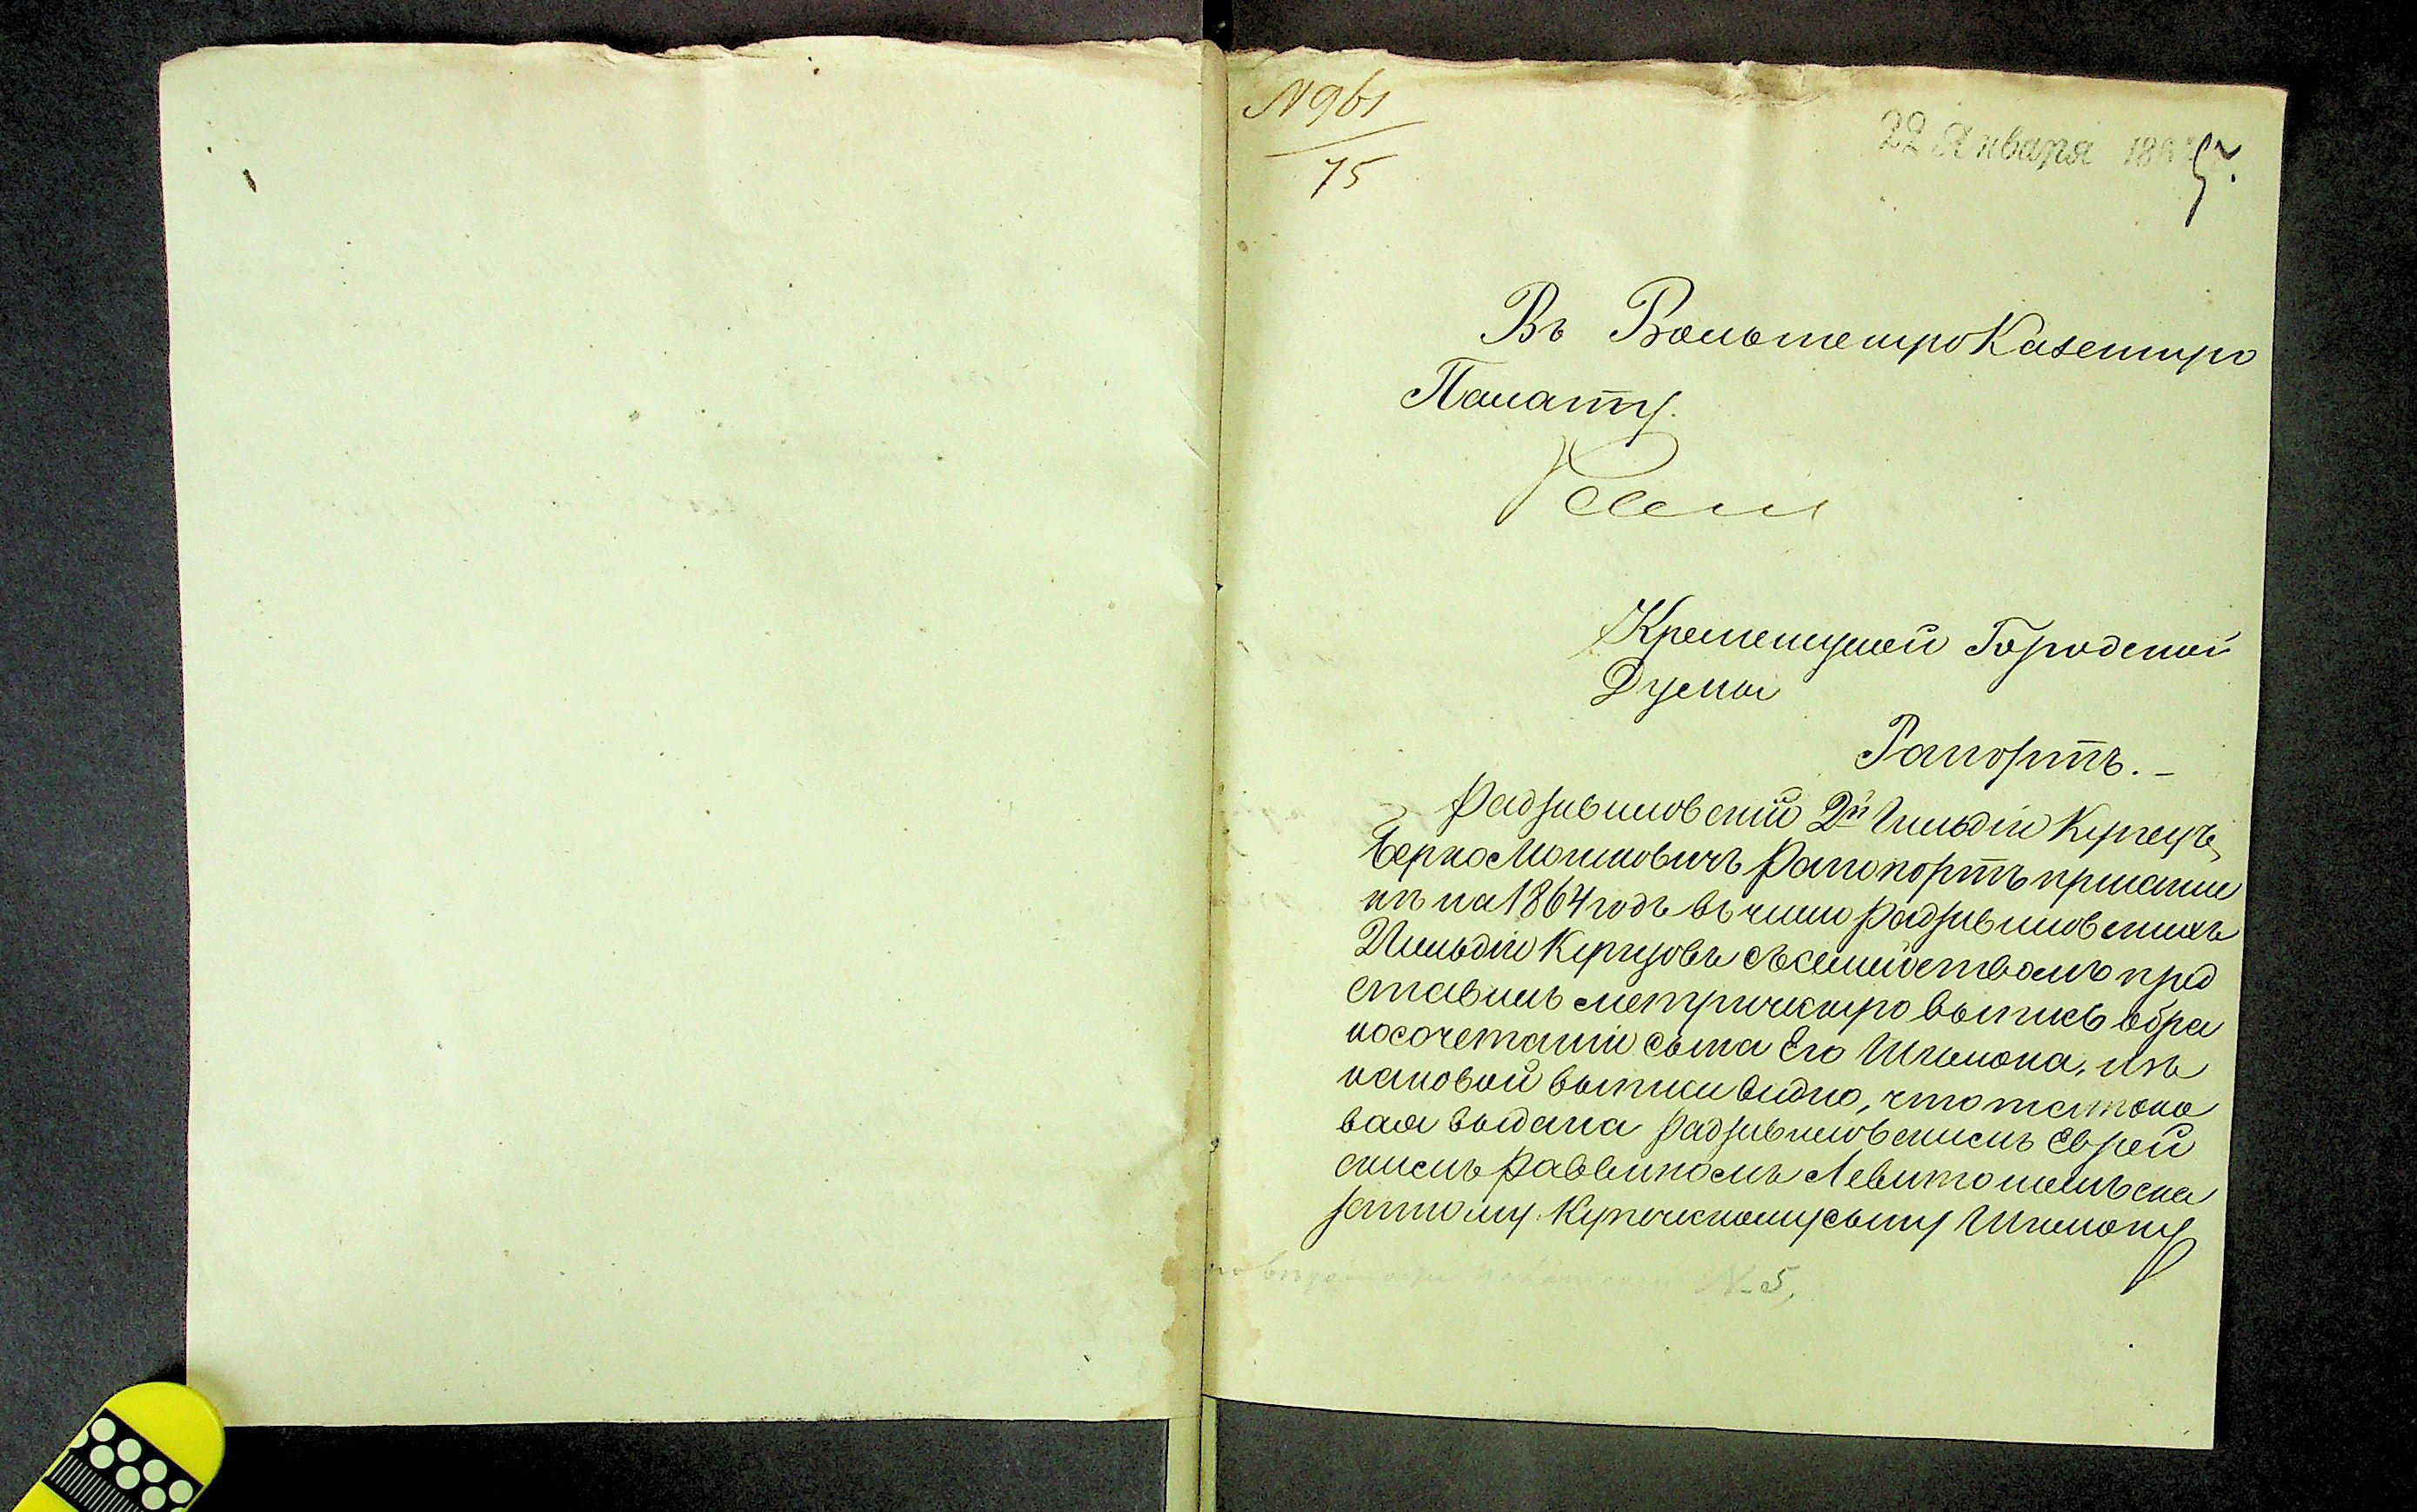 N 961
75
22 Января 186
Въ Волынскую Казенную
Палату.
Кременецкой Городской
Думы
Рапортъ.-
Радзивиловскій 2й Гильдіи Купецъ
Берко Мошковичъ Рапопортъ
на 1864 годъ въ число Радзивиловскихъ
Гильдіи Купцовъ съ семействомъ пред
ставилъ метрическую выпись о бра
косочетаніи сына Его Шлиома, изъ
каковой выписи видно, что
вая выдана Радзивиловскимъ Еврей
скимъ Раввиномъ ска
занному Купеческому сыну
N 5,